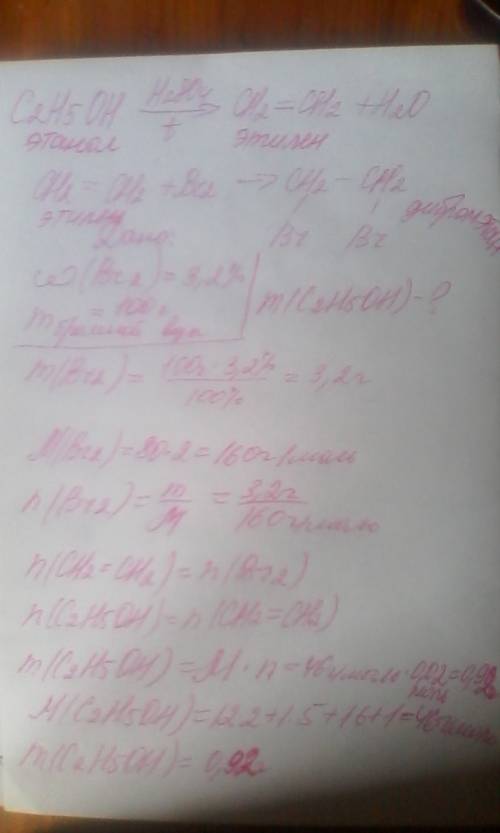 C2H5OH H2SO4 → t CH2 = CH2 + H2O
этанол этилен
CH2 = CH2 + Br2 → CH2 - CH2
этилен Br Br дибромэтан
Дано:
ω(Br2) = 3,2%
m бромной воды = 100г
m(C2H5OH) - ?
m(Br2) = 100г · 3,2% / 100% = 3,2г
M(Br2) = 80·2 = 160г/моль
n(Br2) = m / M = 3,2г / 160г/моль
n(CH2=CH2) = n(Br2)
n(C2H5OH) = n(CH2=CH2)
m(C2H5OH) = M · n = 46г/моль · 0,02 моль = 0,92
M(C2H5OH) = 12·2+1·5+16+1 = 46г/моль
m(C2H5OH) = 0,92г